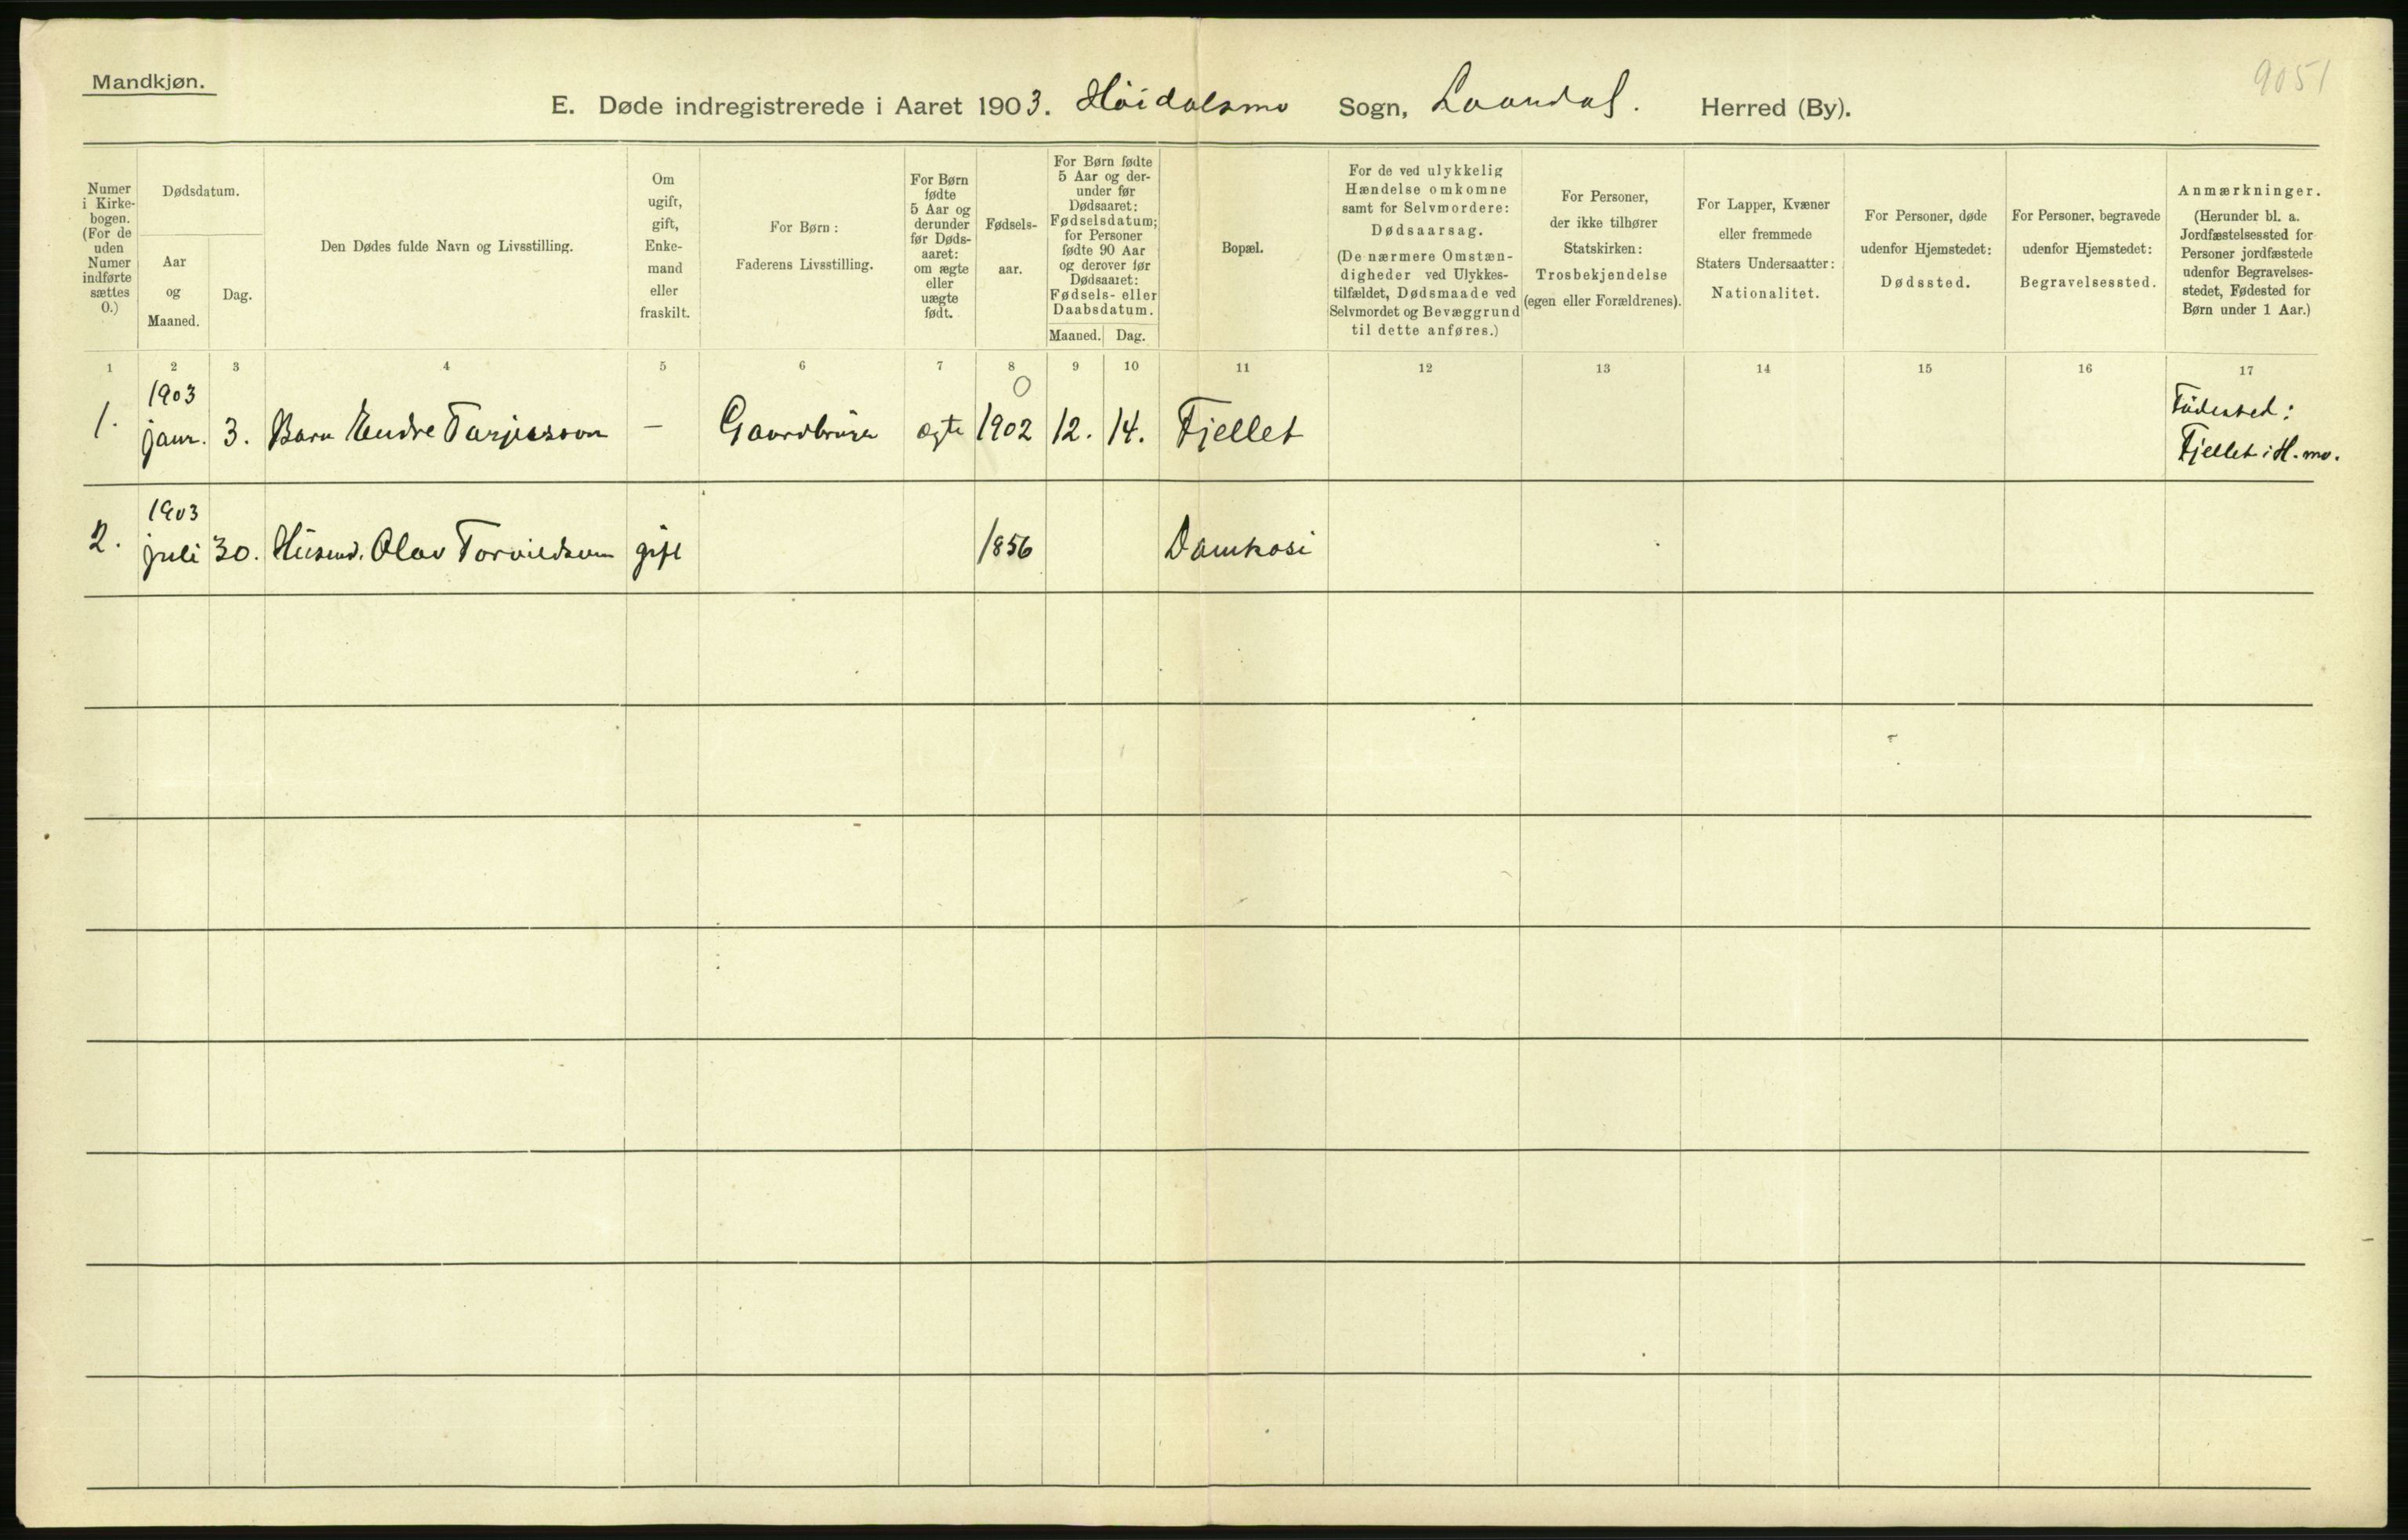 Mandkjøn.
9051
E. Døde indregistrerede i Aaret 1903. Höidalsmo Sogn, Laurdal. Herred (By).
Numer i Kirke-bogen. (For de uden Numer indførte sættes 0.)
Dødsdatum.
Aar og Maaned.
Dag.
Den Dødes fulde Navn og Livsstilling.
Om ugift, gift, Enke-mand eller fraskilt.
For Børn: Faderens Livsstilling.
For Børn fødte 5 Aar og derunder før Døds-aaret: om ægte eller uægte født.
Fødsels-aar.
For Børn fødte 5 Aar og der-under før Dødsaaret: Fødselsdatum; for Personer fødte 90 Aar og derover før Dødsaaret: Fødsels- eller Daabsdatum.
Maaned. Dag.
Bopæl.
For de ved ulykkelig Hændelse omkomne samt for Selvmordere: Dødsaarsag. (De nærmere Omstæn-digheder ved Ulykkes-tilfældet, Dødsmaade ved Selvmordet og Bevæggrund til dette anføres.)
For Personer, der ikke tilhører Statskirken: Trosbekjendelse (egen eller Forældrenes).
For Lapper, Kvæner eller fremmede Staters Undersaatter: Nationalitet.
For Personer, døde udenfor Hjemstedet: Dødssted.
For Personer, begravede udenfor Hjemstedet: Begravelsessted.
Anmærkninger. (Herunder bl. a. Jordfæstelsessted for Personer jordfæstede udenfor Begravelses-stedet, Fødested for Børn under 1 Aar.)
1 2 3 4 5 6 7 8 9 10 11 12 13 14 15 16 17
1903 0 Födested:
1. janr. 3. Barn Endre Tarjeisson — Gaardbruger ægte 1902 12. 14. Fjellet Fjellet i H.mo.
1903
2. juli 30. Husmd. Olav Torvildsen gift 1856